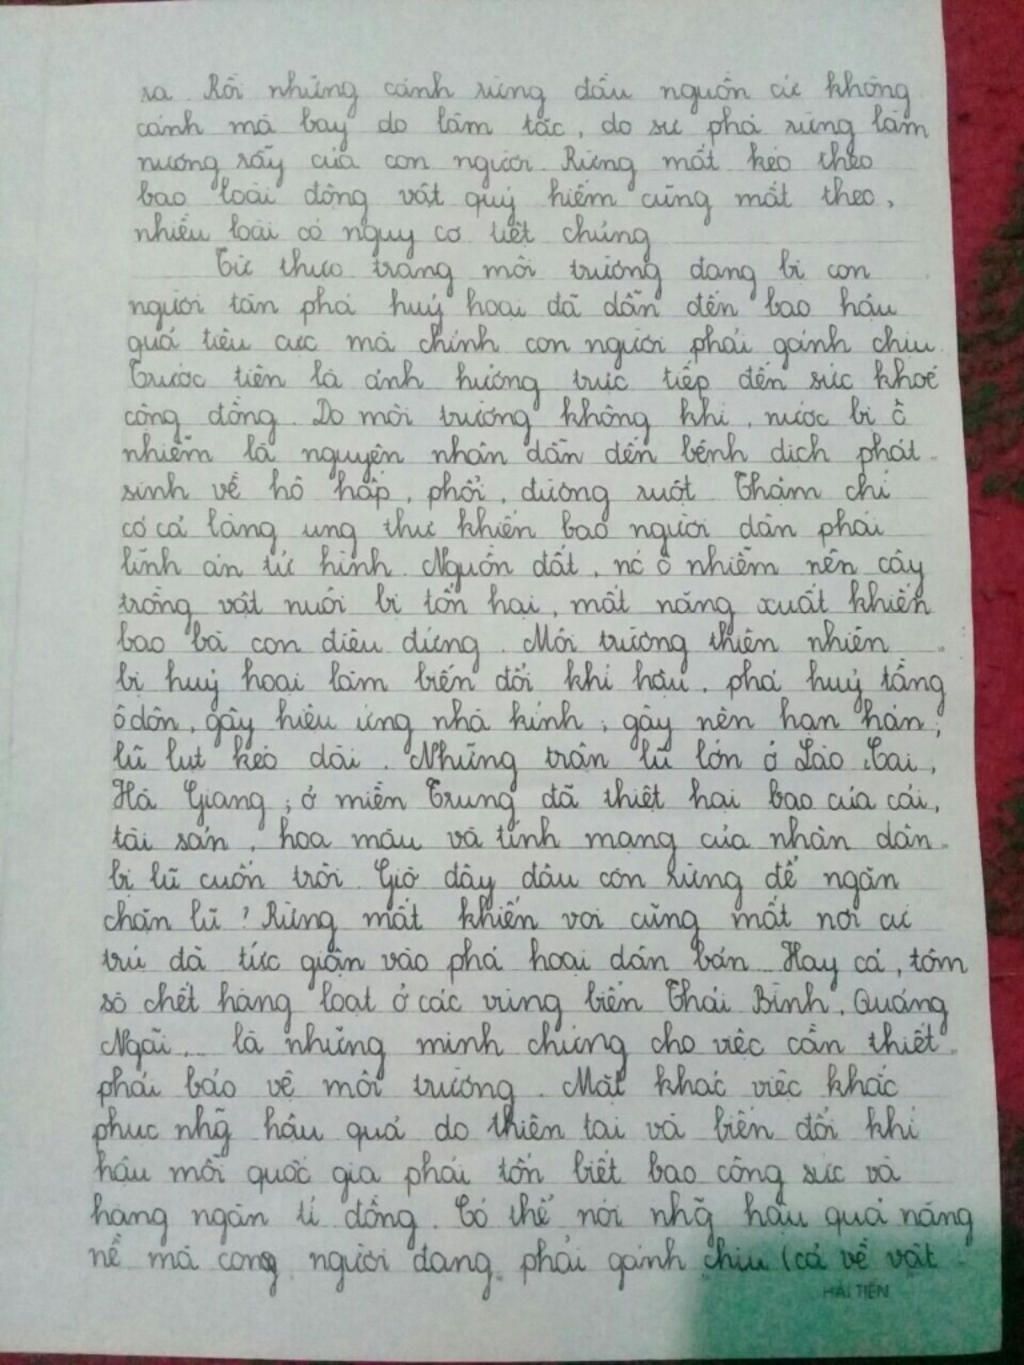 ra. Rồi những cánh rừng đầu nguồn cứ không
cánh mà bay do lâm tặc, do sự phá rừng làm
nương rẫy của con người. Rừng mất kéo theo
bao loài động vật quý hiếm cũng mất theo,
nhiều loài có nguy cơ tiệt chủng
Từ thực trạng môi trường đang bị con
người tàn phá huỷ hoại đã dẫn đến bao hậu
quả tiêu cực mà chính con người phải gánh chịu.
Trước tiên là ảnh hưởng trực tiếp đến sức khoẻ
cộng đồng. Do môi trường không khí, nước bị ô
nhiễm là nguyên nhân dẫn đến bệnh dịch phát
sinh về hô hấp, phổi, đường ruột. Thậm chí
có cả làng ung thư khiến bao người dân phải
lĩnh án tử hình. Nguồn đất, nc ô nhiễm nên cây
trồng vật nuôi bị tổn hại, mất năng xuất khiến
bao bà con điêu đứng. Môi trường thiên nhiên
bị huỷ hoại làm biến đổi khí hậu, phá huỷ tầng
ôdôn, gây hiệu ứng nhà kính, gây nên hạn hán,
lũ lụt kéo dài. Những trận lũ lớn ở Lào Cai,
Hà Giang, ở miền Trung đã thiệt hại bao của cải,
tài sản, hoa màu và tính mạng của nhân dân
bị lũ cuốn trôi. Giờ đây đâu còn rừng để ngăn
chặn lũ? Rừng mất khiến voi cũng mất nơi cư
trú đã tức giận vào phá hoại dân bản... Hay cá, tôm
sò chết hàng loạt ở các vùng biển Thái Bình, Quảng
Ngãi... là những minh chứng cho việc cần thiết
phải bảo vệ môi trường. Mặt khác việc khắc
phục nhg hậu quả do thiên tai và biến đổi khí
hậu mỗi quốc gia phải tốn biết bao công sức và
hàng ngàn tỉ đồng. Có thể nói nhg hậu quả nặng
nề mà cong người đang phải gánh chịu (cả về vật
HẢI TIẾN